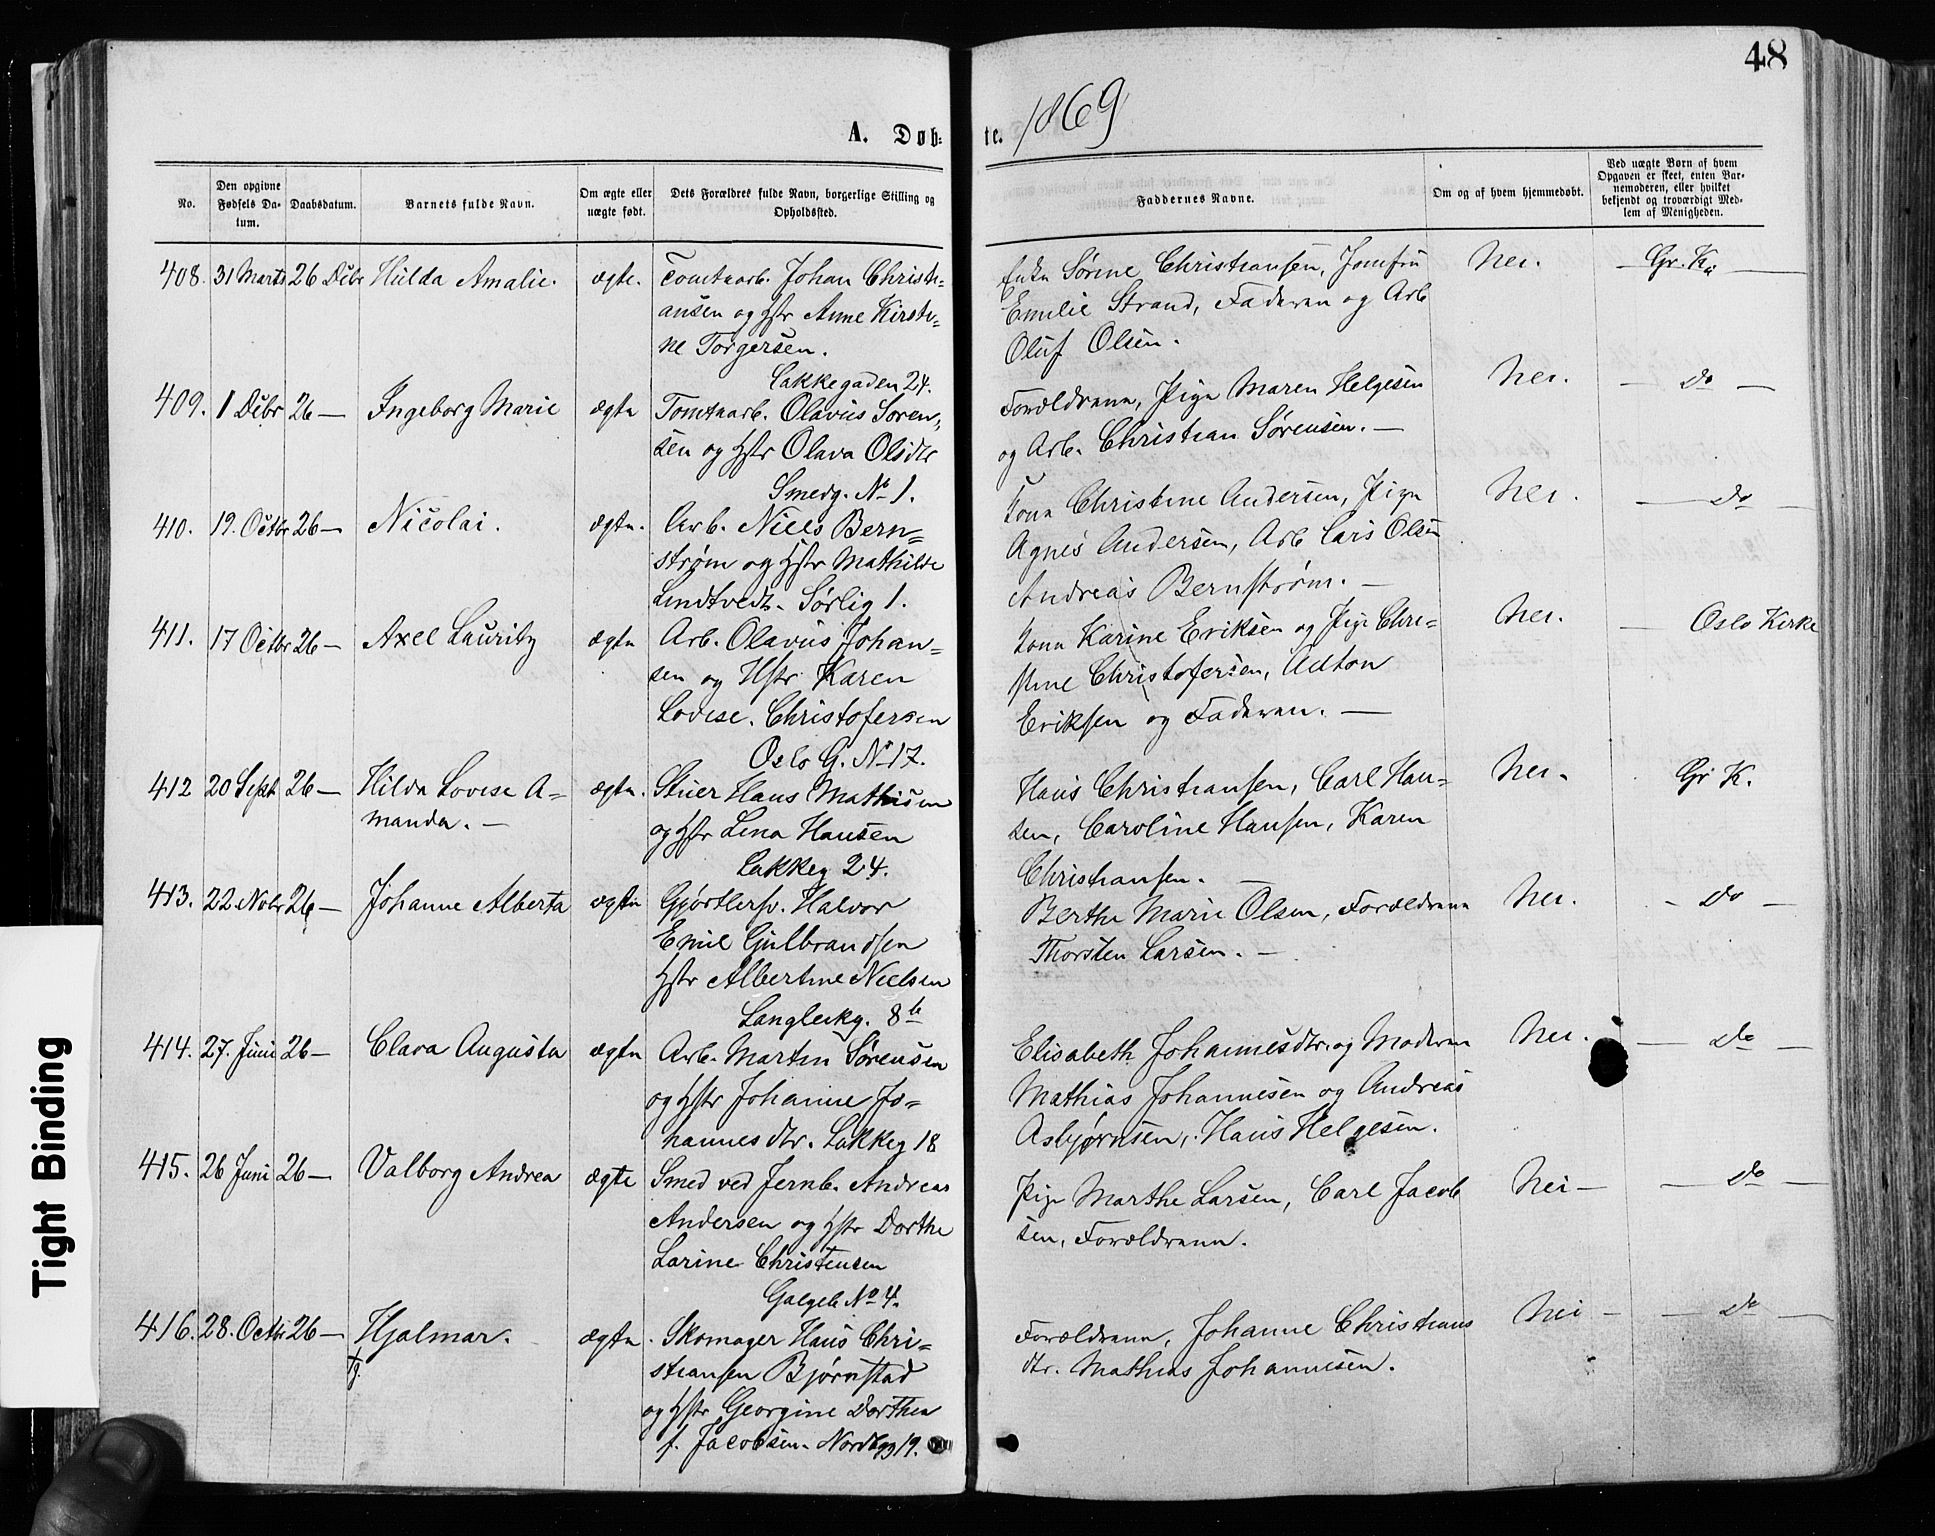 48
A. Døb- te. 1869
No.
Den opgivne Fødsels Da- tum.
Daabsdatum.
Barnets fulde Navn.
Om ægte eller uægte født.
Dets Forældres fulde Navn, borgerlige Stilling og Opholdssted.
Faddernes Navne.
Om og af hvem hjemmedøbt.
Ved uægte Børn af hvem Opgaven er skeet, enten Bar- nemoderen, eller hvilket bekjendt og troværdigt Med- lem af Menigheden.
408. 31 Marts 26 Debr Hilda Amalie. ægte. Tomtearb. Johan Christi= Enke Sørine Christiansen, Jomfru Nei. — Gr. K. —
ansen og Hstr Anne Kirsti= Emilie Strand, Faderen og Arb
ne Torgersen. Oluf Olsen.
Lakkegaden 24.
409. 1 Debr 26 — Ingeborg Marie ægte Tomtearb. Olavus Soren= Forældrene, Pige Maren Helgesen Nei. — do —
sen og Hstr Olava Olsdtr og Arb. Christian Sørensen. —
Smedg. No 1.
410. 19. Octbr 26 — Nicolai. ægte. Arb. Niels Bern= Kone Christine Andersen, Pige Nei. — do —
strøm og Hstr Mathilde Agnes Andersen, Arb Lars Olsen
Lindtvedt. Sørlig 1. Andreas Bernstrøm. —
411. 17 Octbr 26 — Axel Lauritz ægte Arb. Olavus Johan= Kone Karine Eriksen og Pige Chri= Nei. — Oslo Kirke
sen og Hstr Karen stine Christofersen, Adton
Lovise. Christofersen Eriksen og Faderen. —
Oslo G. No 17.
412 20 Sept 26 — Hilda Lovise A= ægte. Stuer Hans Mathisen Hans Christiansen, Carl Han= Nei. Gr K.
manda. — og Hstr Lina Hansen sen, Caroline Hansen, Karen
Lakkeg 24. Christiansen. —
413. 22 Nobr 26 — Johanne Alberta ægte Gjørtlersv. Halvor Berthe Marie Olsen, Forældrene Nei. — do —
Emil Gulbrandsen Thorsten Larsen. —
Hstr Albertine Nielsen
Langleikg. 8b
414. 27. Juni 26 — Clara Augusta ægte Arb. Martin Sørensen Elisabeth Johannesdtr. og Moderen Nei. — do —
og Hstr Johanne Jo= Mathias Johannesen og Andreas
hannesdtr. Lakkeg 18 Asbjørnsen, Hans Helgesen.
415. 26 Juni 26 — Valborg Andrea ægte Smed ved Jernb. Andreas Pige Marthe Larsen, Carl Jacob Nei — — do —
Andersen og Hstr Dorthe sen, Forældrene.
Larine Christensen
Galgeb No 4.
416. 28. Octbr 26 — Hjalmar. ægte. Skomager Hans Chri= Forældrene, Johanne Christians Nei — — do —
stiansen Bjørnstad dtr. Mathias Johannesen.
og Hstr Georgine Dorthea
f. Jacobsen. Nordbyg 19.
Tight Binding